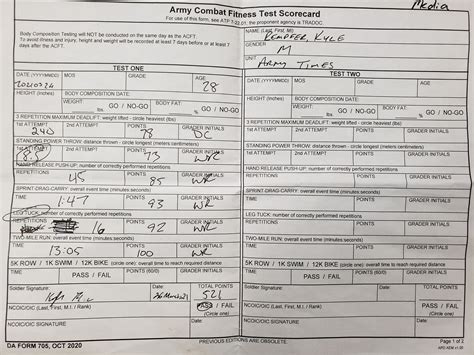 Media
Army Combat Fitness Test Scorecard
For use of this form, see ATP 7-22.01; the proponent agency is TRADOC.
Body Composition Testing will NOT be conducted on the same day as the ACFT.
To avoid illness and injury, height and weight will be recorded at least 7 days before or at least 7 days after the ACFT.
NAME (Last, First, MI.)
Kempfer, Kyle
GENDER
M
UNIT
Army Times
TEST ONE
DATE (YYYYMMDD) MOS GRADE AGE
28
HEIGHT (Inches) BODY COMPOSITION DATE
WEIGHT: lbs. GO / NO-GO BODY FAT: % GO / NO-GO
3 REPETITION MAXIMUM DEADLIFT: weight lifted - circle heaviest (lbs)
1st ATTEMPT 2nd ATTEMPT POINTS GRADER INITIALS
240 78 DC
STANDING POWER THROW: distance thrown - circle longest (meters centimeters)
1st ATTEMPT 2nd ATTEMPT POINTS GRADER INITIALS
73 WR
HAND RELEASE PUSH-UP: number of correctly performed repetitions
REPETITIONS POINTS GRADER INITIALS
45 85 WR
SPRINT-DRAG-CARRY: overall event time (minutes seconds)
TIME POINTS GRADER INITIALS
1:47 93 WR
LEG TUCK: number of correctly performed repetitions
REPETITIONS POINTS GRADER INITIALS
16 92 WR
TWO-MILE RUN: overall event time (minutes seconds)
TIME POINTS GRADER INITIALS
13:05 100 WR
5K ROW / 1K SWIM / 12K BIKE (circle one) time to reach required distance
TIME POINTS (60/0) GRADER INITIALS
PASS / FAIL
Soldier Signature: DATE (YYYYMMDD) TOTAL POINTS
521
NCOIC/OIC (Last, First, M.I. / Rank) PASS / FAIL
(Circle one)
NCOIC/OIC SIGNATURE
TEST TWO
DATE (YYYYMMDD) MOS GRADE AGE
HEIGHT (Inches) BODY COMPOSITION DATE
WEIGHT: lbs. GO / NO-GO BODY FAT: % GO / NO-GO
3 REPETITION MAXIMUM DEADLIFT: weight lifted - circle heaviest (lbs)
1st ATTEMPT 2nd ATTEMPT POINTS GRADER INITIALS
STANDING POWER THROW: distance thrown - circle longest (meters centimeters)
1st ATTEMPT 2nd ATTEMPT POINTS GRADER INITIALS
HAND RELEASE PUSH-UP: number of correctly performed repetitions
REPETITIONS POINTS GRADER INITIALS
SPRINT-DRAG-CARRY: overall event time (minutes seconds)
TIME POINTS GRADER INITIALS
LEG TUCK: number of correctly performed repetitions
REPETITIONS POINTS GRADER INITIALS
TWO-MILE RUN: overall event time (minutes seconds)
TIME POINTS GRADER INITIALS
5K ROW / 1K SWIM / 12K BIKE (circle one) time to reach required distance
TIME POINTS (60/0) GRADER INITIALS
PASS / FAIL
Soldier Signature: DATE (YYYYMMDD) TOTAL POINTS
NCOIC/OIC (Last, First, M.I. / Rank) PASS / FAIL
(Circle one)
NCOIC/OIC SIGNATURE
DA FORM 705, OCT 2020
PREVIOUS EDITIONS ARE OBSOLETE.
Page 1 of 2